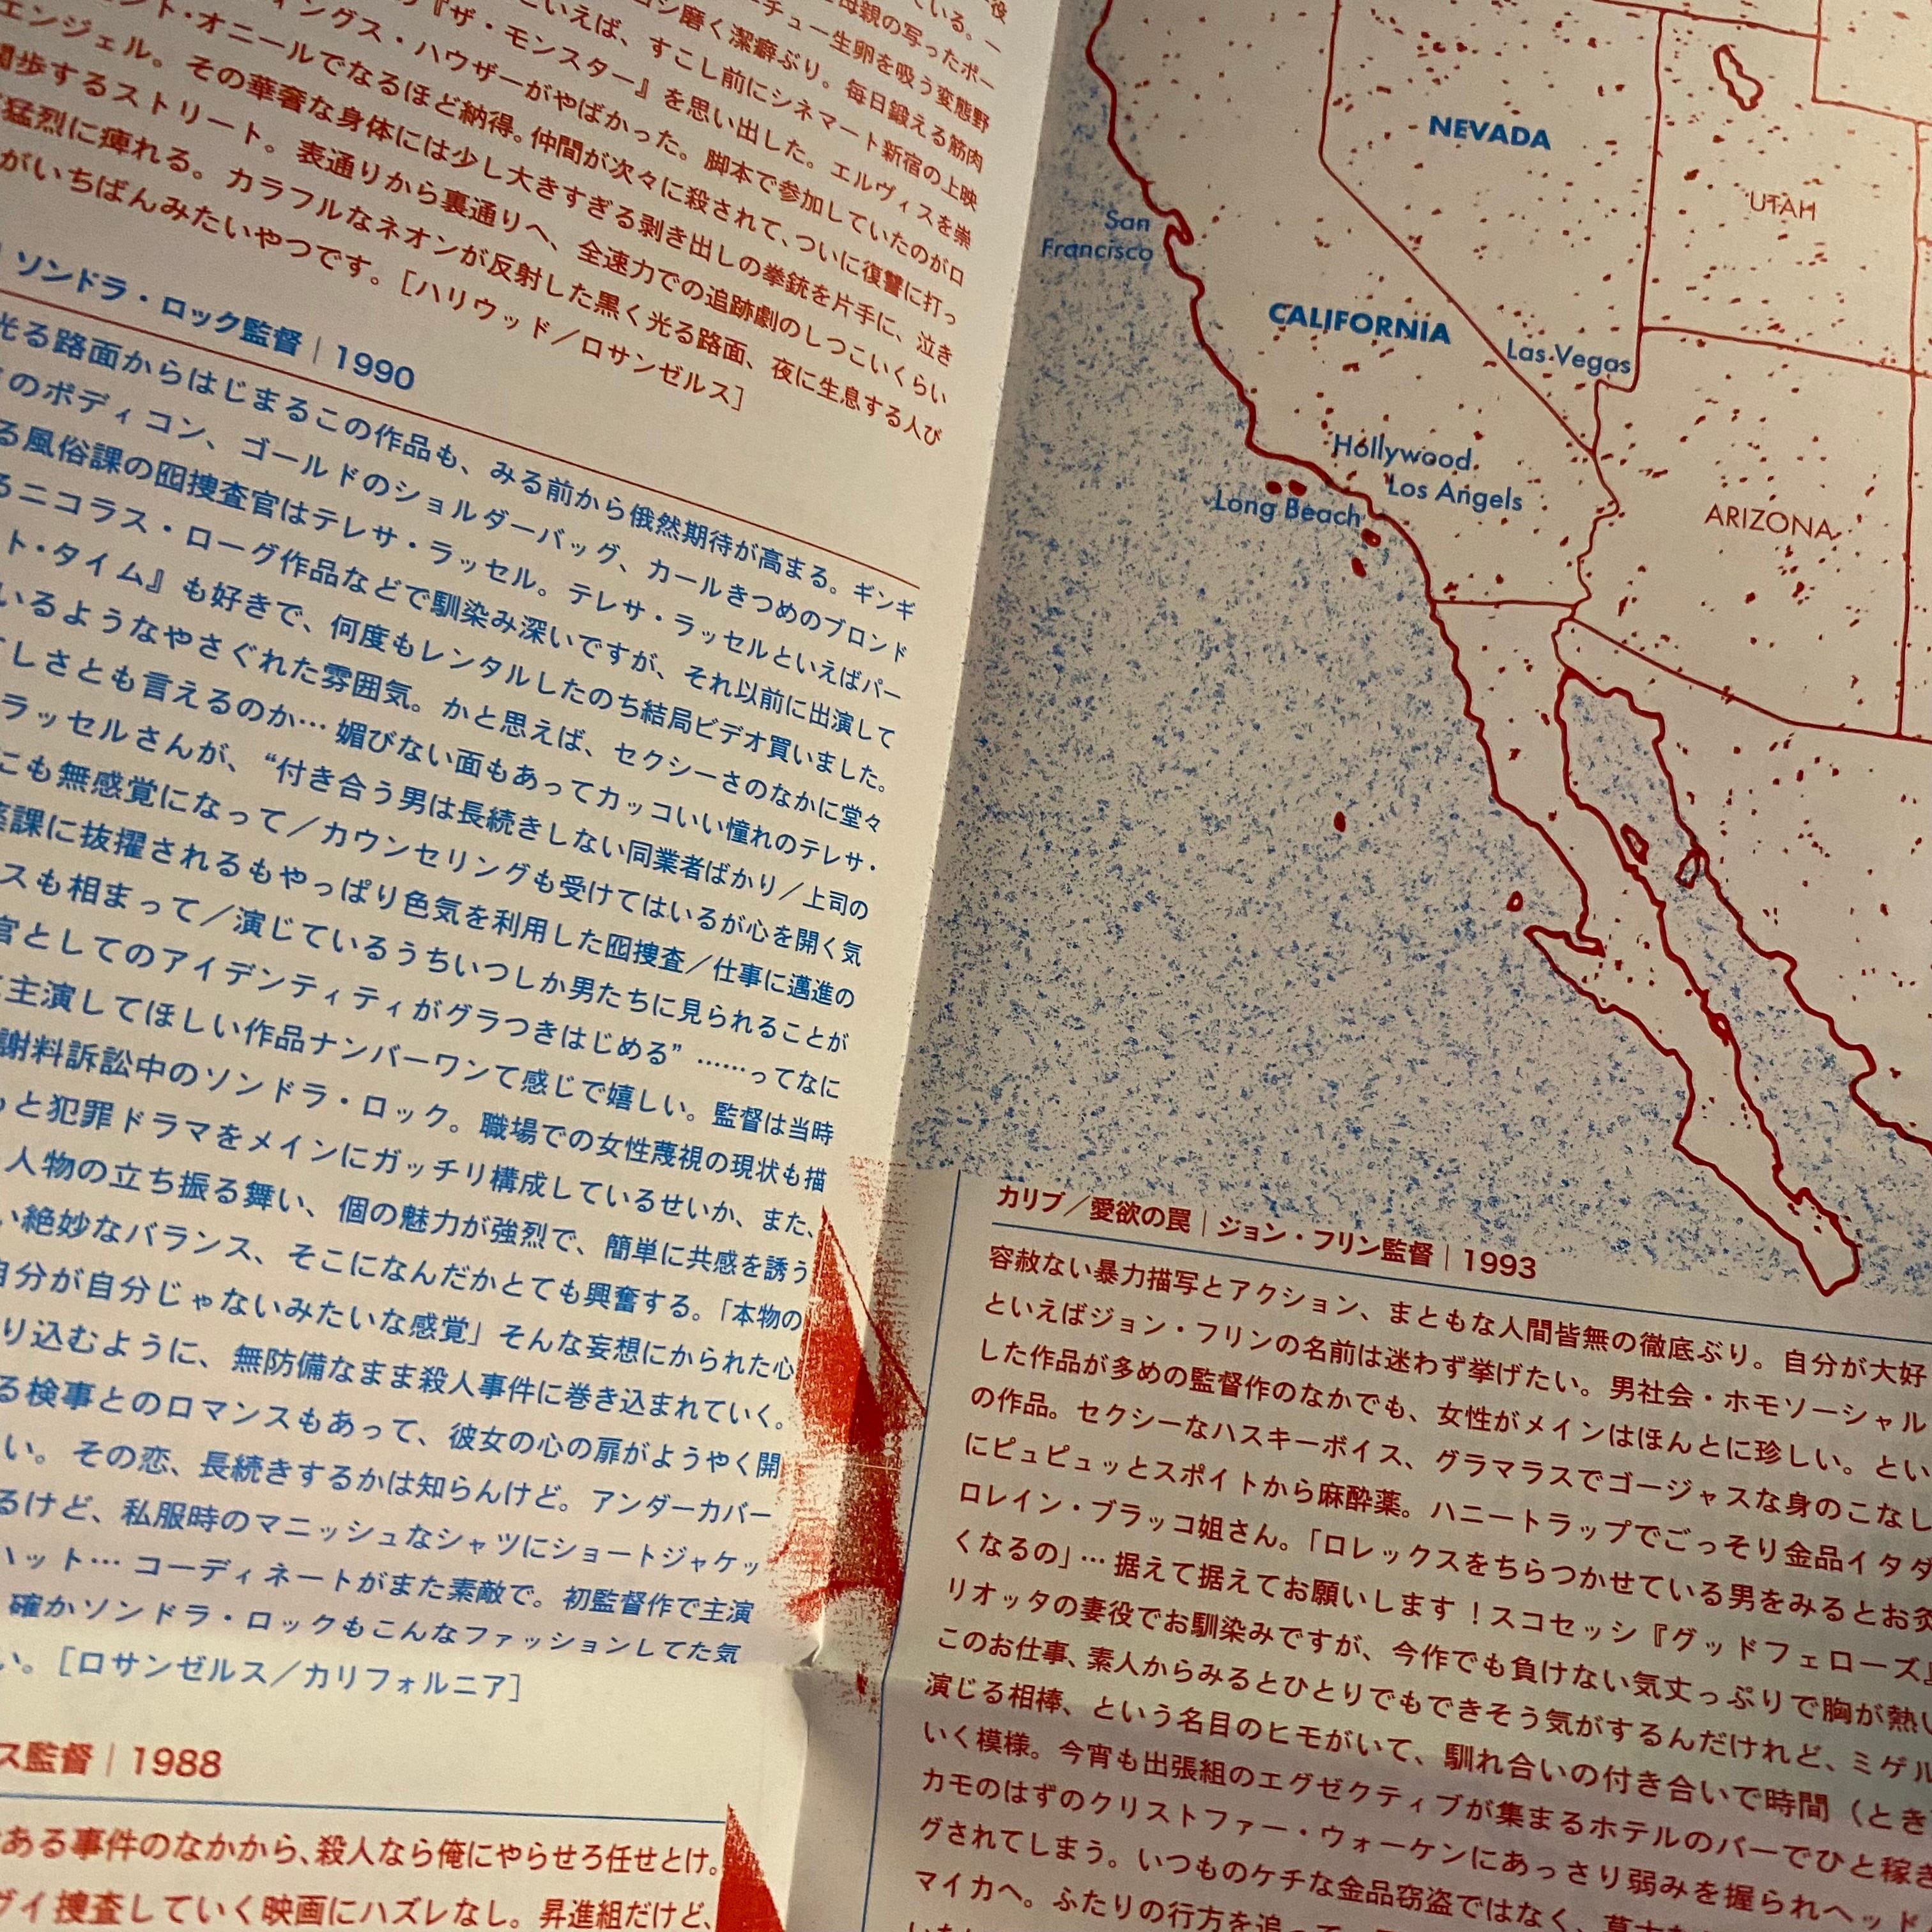 役
ている。一
母親の写ったポー
ーチュー生卵を吸う変態野
シ磨く潔癖ぶり。毎日鍛える筋肉
といえば、すこし前にシネマート新宿の上映
『ザ・モンスター』を思い出した。エルヴィスを崇
ィングス・ハウザーがやばかった。脚本で参加していたのがロ
ント・オニールでなるほど納得。仲間が次々に殺されて、ついに復讐に打っ
エンジェル。その華奢な身体には少し大きすぎる剥き出しの拳銃を片手に、泣き
闊歩するストリート。表通りから裏通りへ、全速力での追跡劇のしつこいくらい
猛烈に痺れる。カラフルなネオンが反射した黒く光る路面、夜に生息する人び
がいちばんみたいやつです。［ハリウッド／ロサンゼルス］
ソンドラ・ロック監督｜1990
光る路面からはじまるこの作品も、みる前から俄然期待が高まる。ギンギ
のボディコン、ゴールドのショルダーバッグ、カールきつめのブロンド
る風俗課の囮捜査官はテレサ・ラッセル。テレサ・ラッセルといえばパー
るニコラス・ローグ作品などで馴染み深いですが、それ以前に出演して
ト・タイム』も好きで、何度もレンタルしたのち結局ビデオ買いました。
いるようなやさぐれた雰囲気。かと思えば、セクシーさのなかに堂々
しさとも言えるのか… 媚びない面もあってカッコいい憧れのテレサ・
ラッセルさんが、“付き合う男は長続きしない同業者ばかり／上司の
こも無感覚になって／カウンセリングも受けてはいるが心を開く気
課に抜擢されるもやっぱり色気を利用した囮捜査／仕事に邁進の
スも相まって／演じているうちいつしか男たちに見られることが
官としてのアイデンティティがグラつきはじめる” ……ってなに
主演してほしい作品ナンバーワンて感じで嬉しい。監督は当時
謝料訴訟中のソンドラ・ロック。職場での女性蔑視の現状も描
と犯罪ドラマをメインにガッチリ構成しているせいか、また、
人物の立ち振る舞い、個の魅力が強烈で、簡単に共感を誘う
い絶妙なバランス、そこになんだかとても興奮する。「本物の
自分が自分じゃないみたいな感覚」そんな妄想にかられた心
り込むように、無防備なまま殺人事件に巻き込まれていく。
る検事とのロマンスもあって、彼女の心の扉がようやく開
い。その恋、長続きするかは知らんけど。アンダーカバー
るけど、私服時のマニッシュなシャツにショートジャケッ
ハット… コーディネートがまた素敵で。初監督作で主演
確かソンドラ・ロックもこんなファッションしてた気
い。［ロサンゼルス／カリフォルニア］
ス監督｜1988
ある事件のなかから、殺人なら俺にやらせろ任せとけ。
イ捜査していく映画にハズレなし。昇進組だけど、
NEVADA
UTAH
San
Francisco
CALIFORNIA
Las Vegas
Hollywood
Los Angels
Long Beach
ARIZONA
カリブ／愛欲の罠｜ジョン・フリン監督｜1993
容赦ない暴力描写とアクション、まともな人間皆無の徹底ぶり。自分が大好
といえばジョン・フリンの名前は迷わず挙げたい。男社会・ホモソーシャル
した作品が多めの監督作のなかでも、女性がメインはほんとに珍しい。とい
の作品。セクシーなハスキーボイス、グラマラスでゴージャスな身のこなし
にピュピュッとスポイトから麻酔薬。ハニートラップでごっそり金品イタダ
ロレイン・ブラッコ姐さん。「ロレックスをちらつかせている男をみるとお灸
くなるの」… 据えて据えてお願いします！スコセッシ『グッドフェローズ』
リオッタの妻役でお馴染みですが、今作でも負けない気丈っぷりで胸が熱い
このお仕事、素人からみるとひとりでもできそう気がするんだけれど、ミゲル
演じる相棒、という名目のヒモがいて、馴れ合いの付き合いで時間（とき
いく模様。今宵も出張組のエグゼクティブが集まるホテルのバーでひと稼ぎ
カモのはずのクリストファー・ウォーケンにあっさり弱みを握られヘッド
グされてしまう。いつものケチな金品窃盗ではなく、
マイカへ。ふたりの行方を追って